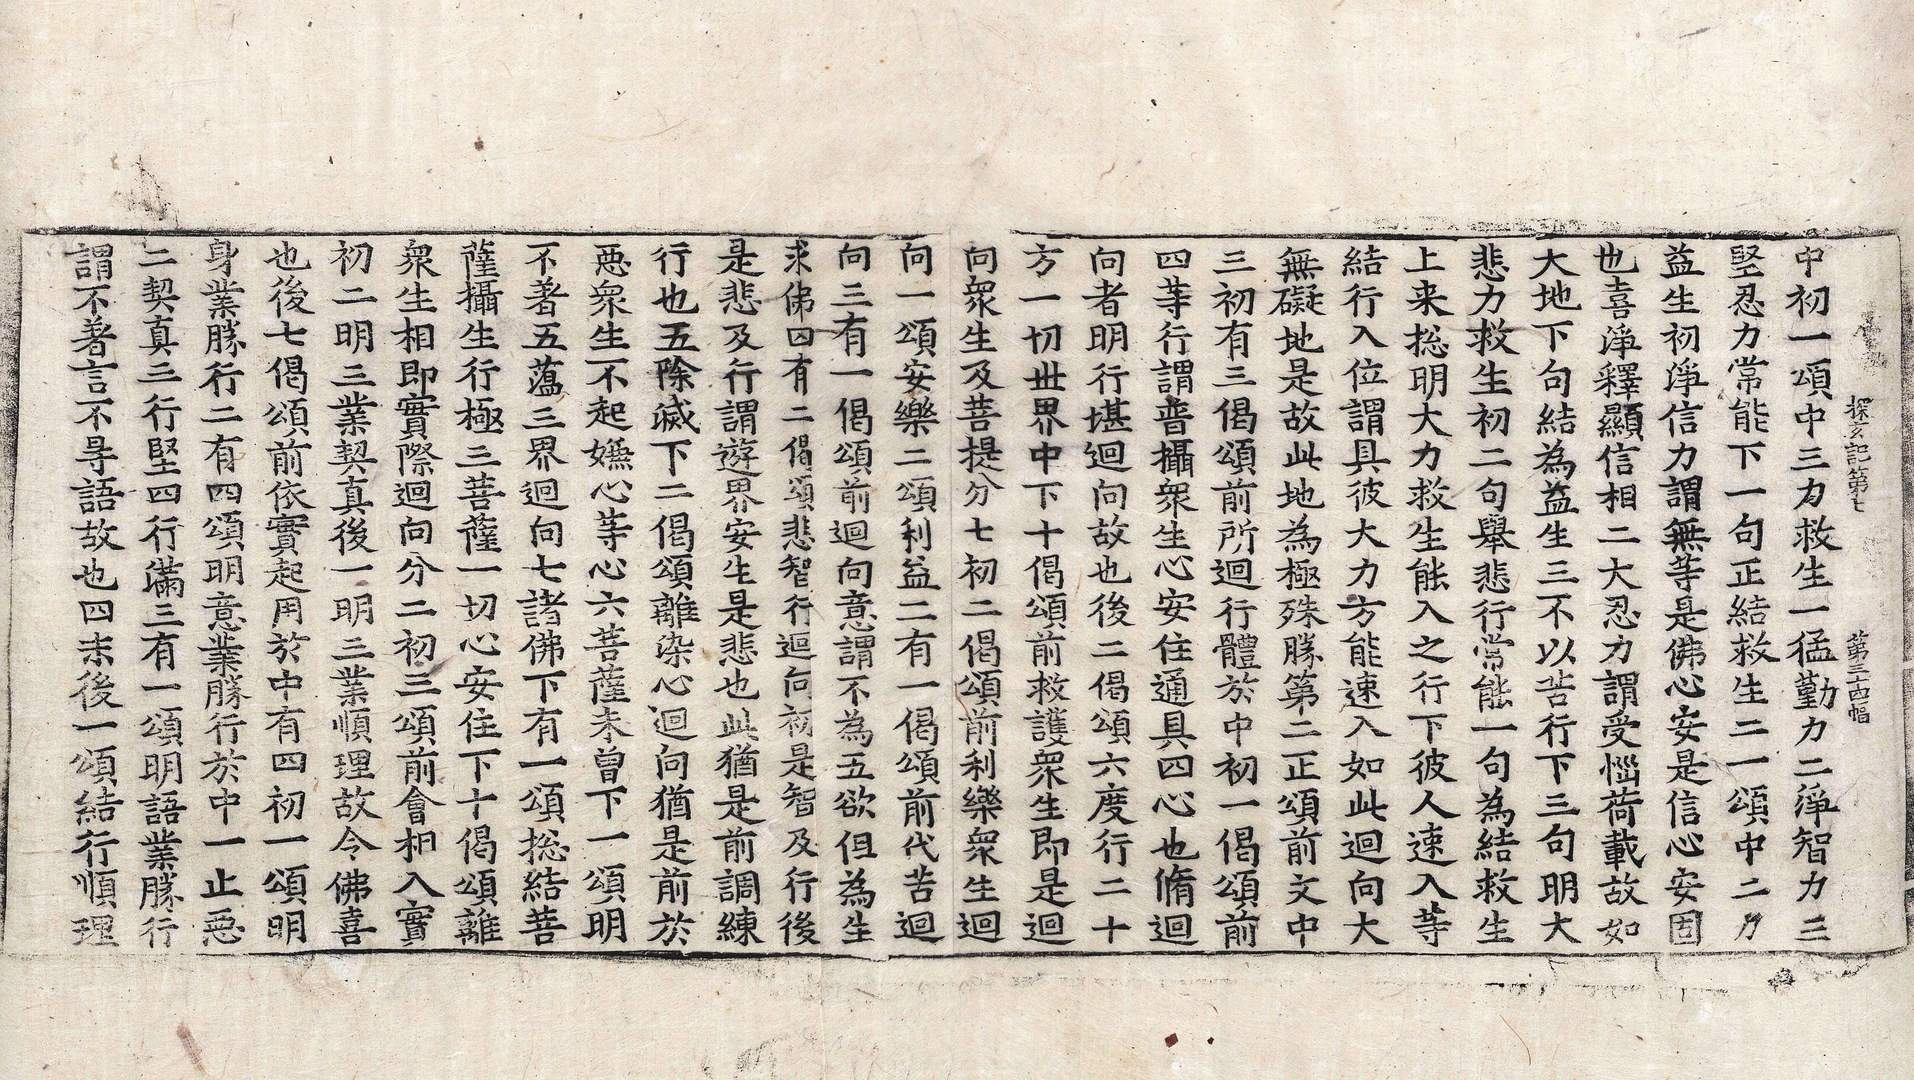 探玄記第七　第三十四幅
中初一頌中三力救生一猛勤力二淨智力三
堅忍力常能下一句正結救生二一頌中二力
益生初淨信力謂無等是佛心安是信心安固
也喜淨釋顯信相二大忍力謂受惱荷載故如
大地下句結為益生三不以苦行下三句明大
悲力救生初二句舉悲行常能一句為結救生
上来揔明大力救生能入之行下彼人速入等
結行入位謂具彼大力方能速入如此迴向大
無礙地是故此地為極殊勝第二正頌前文中
三初有三偈頌前所迴行體於中初一偈頌前
四等行謂普攝衆生心安住通具四心也脩迴
向者明行堪迴向故也後二偈頌六度行二十
方一切世界中下十偈頌前救護衆生即是迴
向衆生及菩提分七初二偈頌前利樂衆生迴
向一頌安樂二頌利益二有一偈頌前代苦迴
向三有一偈頌前迴向意謂不為五欲但為生
求佛四有二偈頌悲智行迴向初是智及行後
是悲及行謂遊界安生是悲也此猶是前調練
行也五除滅下二偈頌離染心迴向猶是前於
惡衆生不起嫌心等心六菩薩未曾下一頌明
不著五蘊三界迴向七諸佛下有一頌揔結菩
薩攝生行極三菩薩一切心安住下十偈頌離
衆生相即實際迴向分二初三頌前會相入實
初二明三業契真後一明三業順理故令佛喜
也後七偈頌前依實起用於中有四初一頌明
身業勝行二有四頌明意業勝行於中一止惡
二契真三行堅四行滿三有一頌明語業勝行
謂不著言不㝵語故也四末後一頌結行順理